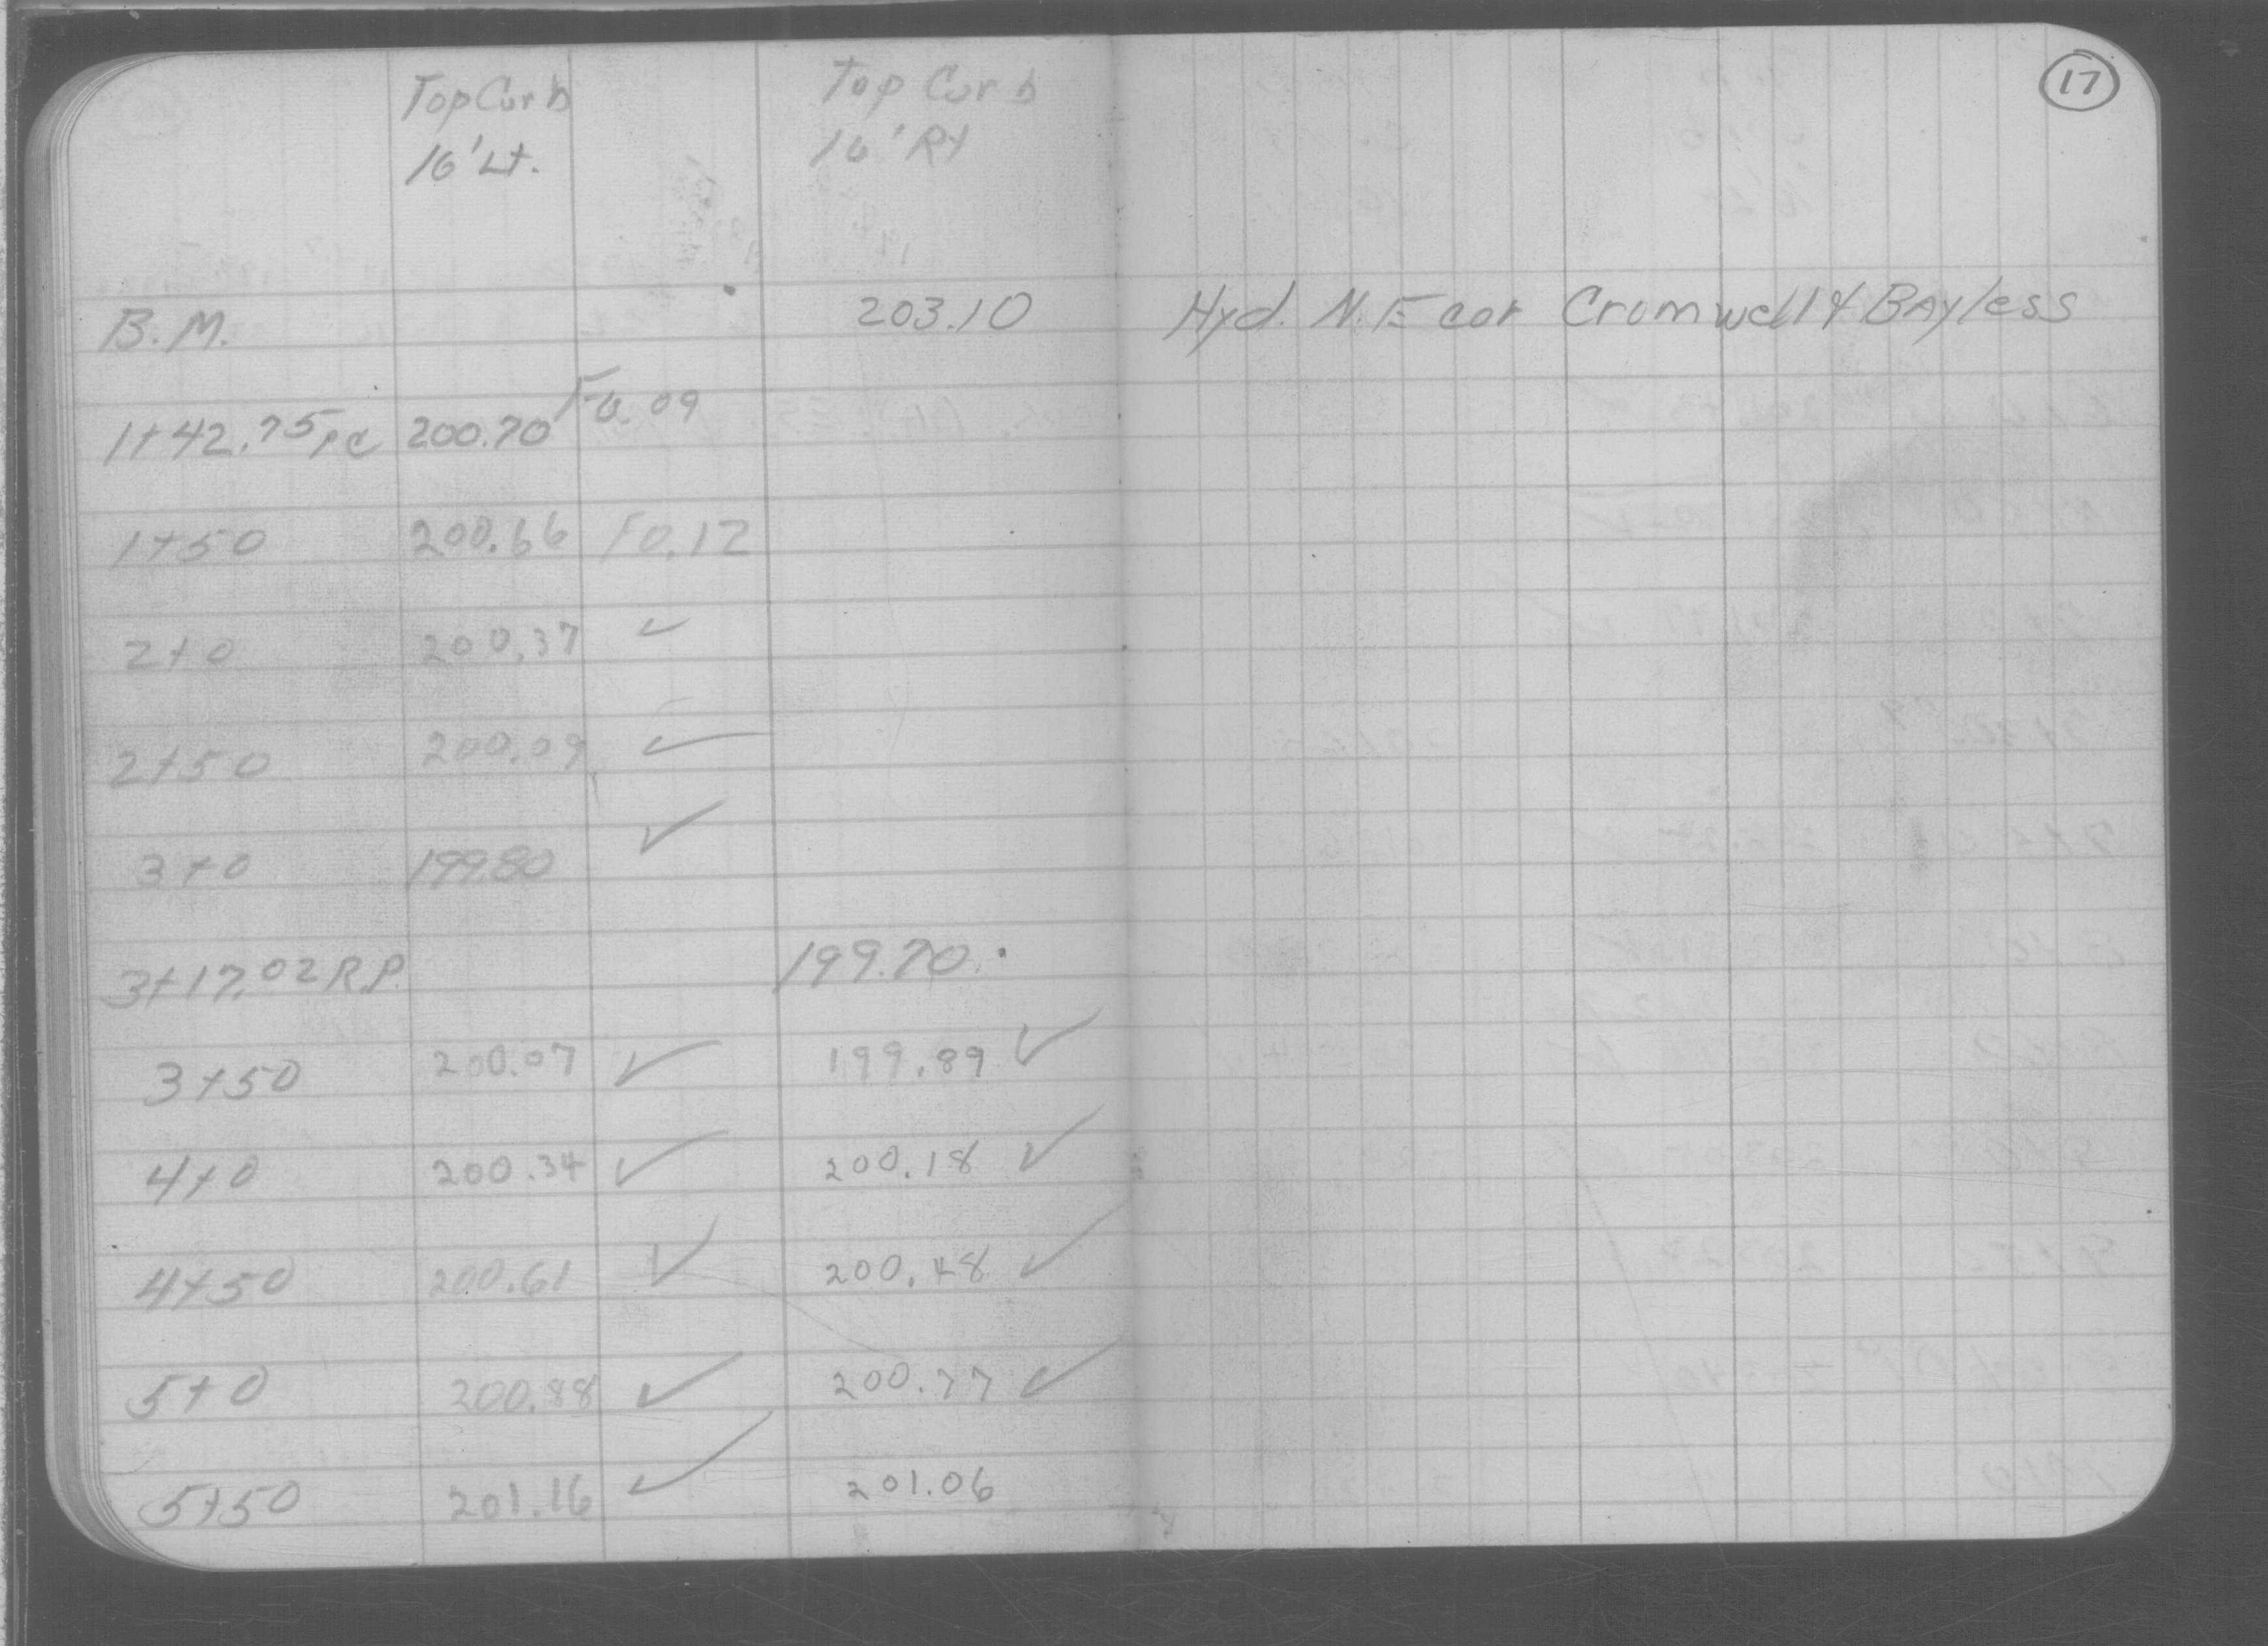 17
Top Curb Top Curb
16' Lt. 16' Rt
B.M. 203.10 Hyd. N.E cor Cromwell & Bayless
1+42.75 PC 200.70 F0.09
1+50 200.66 F0.12
2+0 200.37 ✓
2+50 200.09 ✓
3+0 199.80 ✓
3+17.02 R.P. 199.70
3+50 200.07 ✓ 199.89 ✓
4+0 200.34 ✓ 200.18 ✓
4+50 200.61 ✓ 200.48 ✓
5+0 200.88 ✓ 200.77 ✓
5+50 201.16 ✓ 201.06